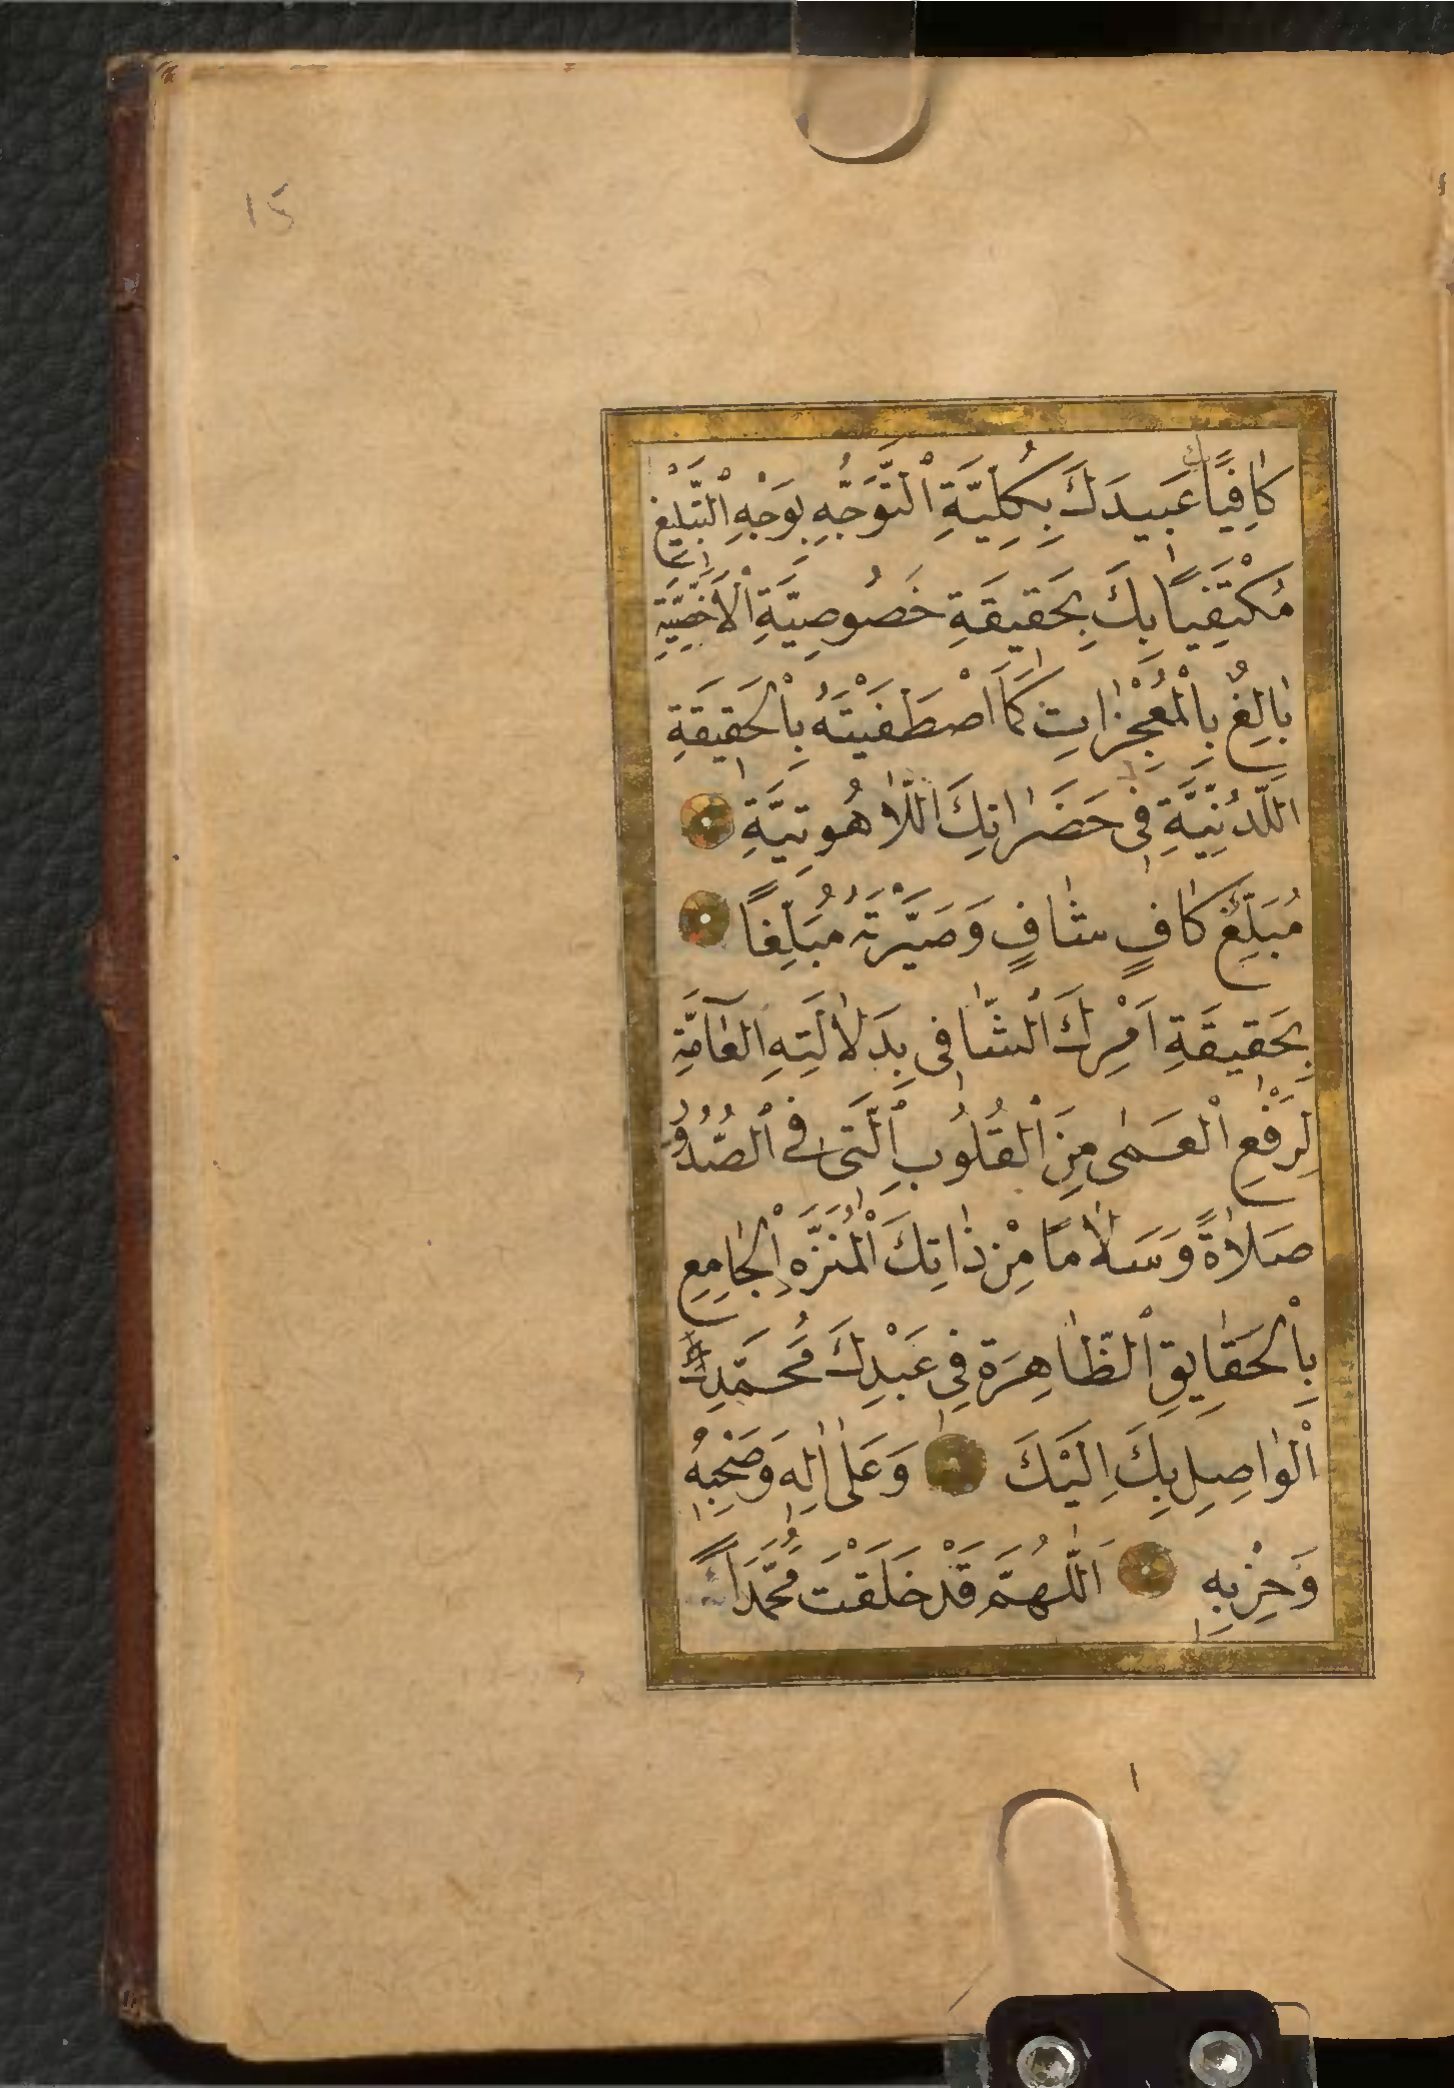 15
كَافِيًا عَبِيدَكَ بِكُلِّيَّةِ اَلتَّوَجُّهِ بِوَجْهِ اَلتَّبْلِيغِ
مُكْتَفِيًا بِكَ بِحَقِيقَةِ خَصُوصِيَّةِ اْلاَخَصِّيَّةِ
بَالِغٌ بِالْمُعْجِزَاتِ كَمَا اَصْطَفَيْتَهُ بِالْحَقِيقَةِ
اللَّدُنِّيَّةِ فِي حَضَرَاتِكَ اللَّاهُوتِيَّةِ
مُبَلِّغٌ كَافٍ شَافٍ وَصَيَّرْتَهُ مُبَلِّغًا
بِحَقِيقَةِ اَمْرِكَ اَلشَّافِي بِدَلَالَتِهِ الْعَآمَّةِ
لِرَفْعِ الْعَمٰى مِنَ الْقُلُوبِ اَلَّتِي فِي الصُّدُو
صَلَاةً وَسَلَامًا مِنْ ذَاتِكَ الْمُنَزَّهِ الْجَامِعِ
بِالْحَقَايِقِ الظَّاهِرَةِ فِي عَبْدِكَ مُحَمَّدِكَ
اَلْوَاصِلِ بِكَ اِلَيْكَ وَعَلٰى اٰلِهِ وَصَحْبِهِ
وَحِزْبِهِ اَللّٰهُمَّ قَدْ خَلَقْتَ مُحَمَّدًا